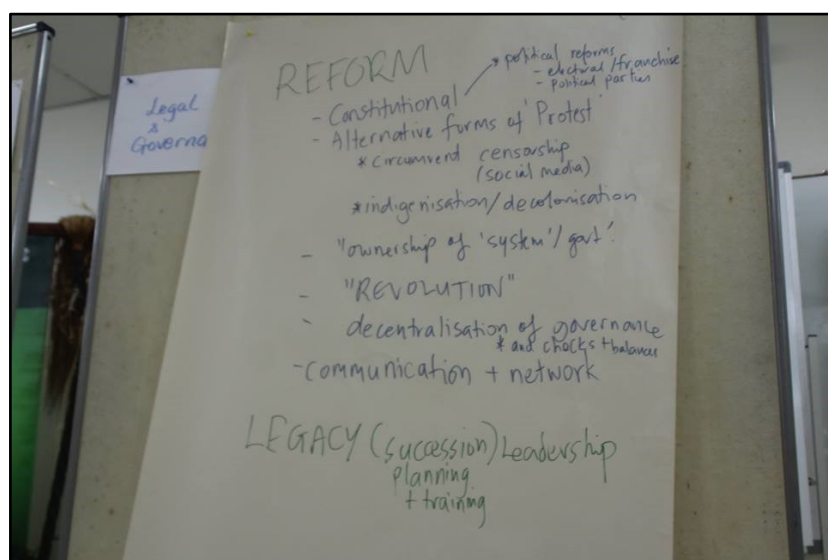 Legal
&
Governa
REFORM
- Constitutional
* political reforms
- electoral/franchise
- political parties
- Alternative forms of 'Protest'
* circumvent censorship
(social media)
* indigenisation/decolonisation
- "ownership of 'system'/govt'.
- "REVOLUTION"
- decentralisation of governance
* and checks + balances
- communication + network
LEGACY (succession) Leadership
planning
+ training